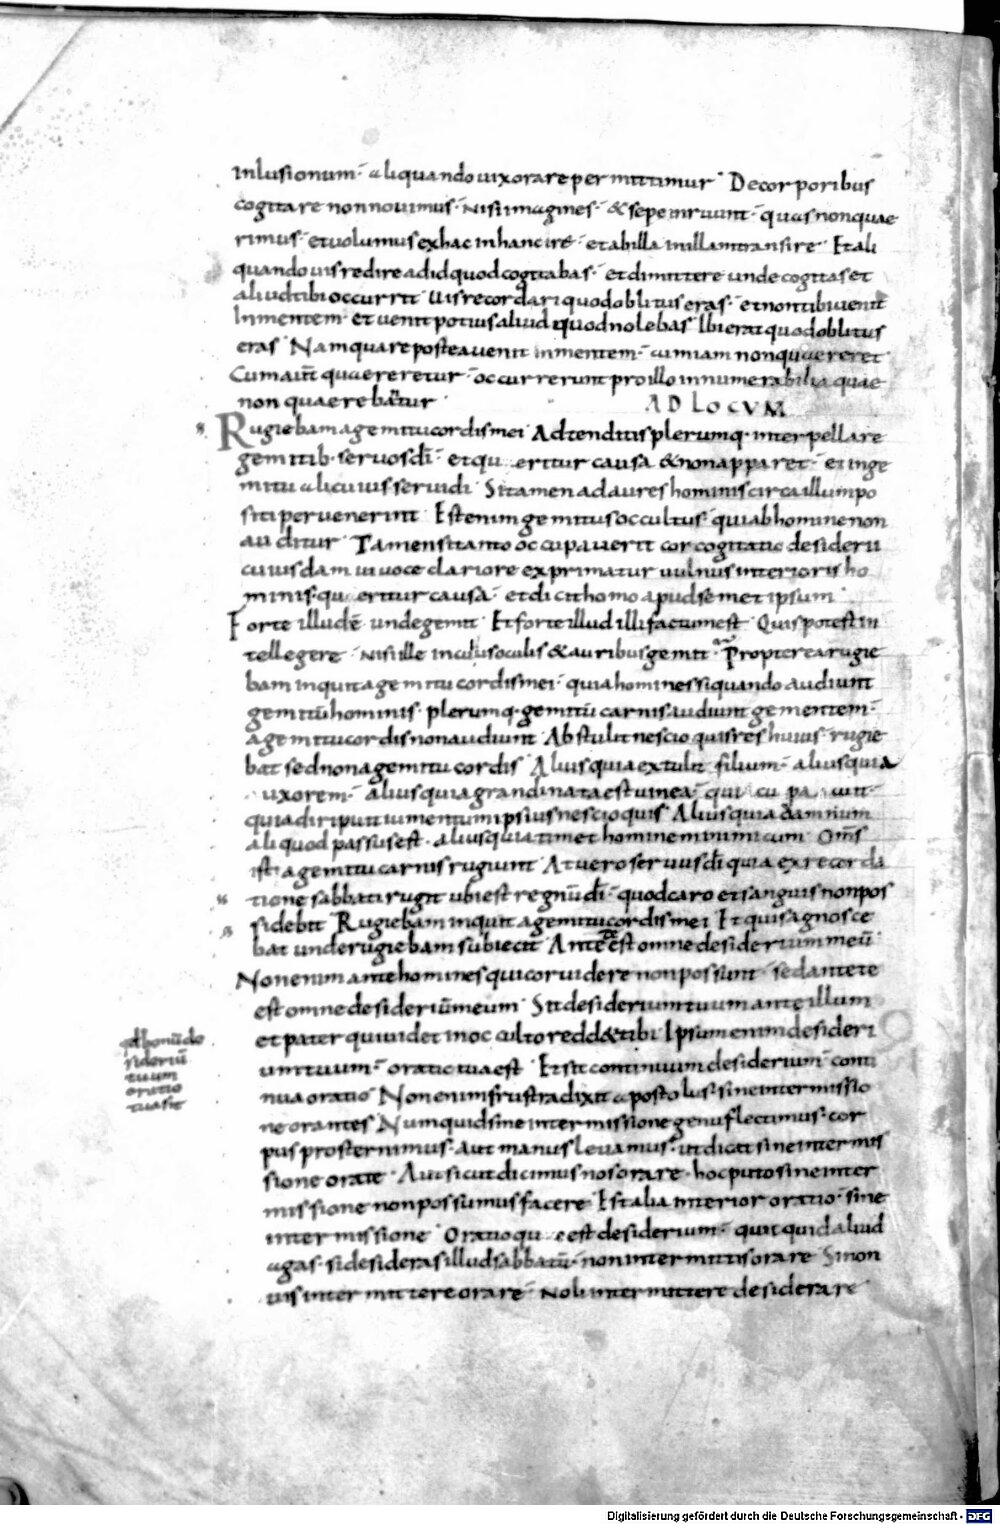 inlusionum· aliquando uix orare permittimur· De corporibus
cogitare non nouimus· nisi imagines· & sepe inruunt· quas non quae
rimus· et uolumus ex hac in hanc ire· et ab illa in illam transire· Et ali
quando uis redire ad id quod cogitabas· et dimittere unde cogitas et
aliud tibi occurrit Uis recordari quod oblitus eras· et non tibi uenit
In mentem· et uenit potius aliud quod nolebas Ibi erat quod oblitus
eras Nam quare postea uenit in mentem· cum iam non quaereret
Cum aut̄ quaereretur· occurrerunt pro illo innumerabilia quae
non quaerebantur· AD LOCUM
Rugiebam a gemitu cordis mei Adtenditis plerumq· interpellare
gemitib· seruos dī· et qu eritur causa & non apparet· et inge
mitu alicuius serui di Si tamen ad aures hominis circa illum po
siti peruenerint Est enim gemitus occultus· qui ab homine non
auditur Tamen si tanto occupauerit cor cogitatio desiderii
cuiusdam ut uoce clariore exprimatur uulnus interioris ho
minis· qu eritur causa· et dicit homo apud semet ipsum
Forte illud ē unde gemit Et forte illud illi factum est Quis potest in
tellegere nisi ille in cuius oculis & auribus gemit· Propterea rugie
bam inquit a gemitu cordis mei· quia homines si quando audiunt
gemitū hominis· plerumq· gemitū carnis audiunt gementem·
a gemitu cordis non audiunt Abstulit nescio quis res huius· rugie
bat sed non a gemitu cordis Alius quia extulit filium· alius quia
uxorem· alius quia grandinata est uinea·
quia diripuit iumentum ipsius nescio quis Alius quia damnum
aliquod passus est· alius quia timet hominem inimicum Om̄s
isti a gemitu carnis rugiunt At uero seruus dī quia ex recorda
tione sabbati rugit ubi est regnū dī· quod caro et sanguis non pos
sidebit Rugiebam inquit a gemitu cordis mei Et quis agnosce
bat unde rugiebam subiecit Ante te est omne desiderium meū
Non enim ante homines qui cor uidere non possunt· sed ante te
est omne desideriūm meum· Sit desiderium tuum ante illum
et pater qui uidet in occulto redd&tibi Ipsum enim desideri
um tuum· oratio tua est Et si continuum desiderium· conti
nua oratio Non enim frustra dixit apostolus· sine intermissio
ne orantes Numquid sine intermissione genu flectimus· cor
pus prosternimus· aut manus leuamus· ut dicat sine intermis
sione orate Aut si cut dicimus nos orare· hoc puto sine inter
missione non possumus facere Est alia interior oratio· sine
intermissione Oratio qu e est desiderium· quit quid aliud
agas· si desideras illud sabbatū· non intermittis orare Si non
uis intermittere orare· Noli intermittere desiderare
desideriū
tuum
oratio
tua sit
Digitalisierung gefördert durch die Deutsche Forschungsgemeinschaft - DFG